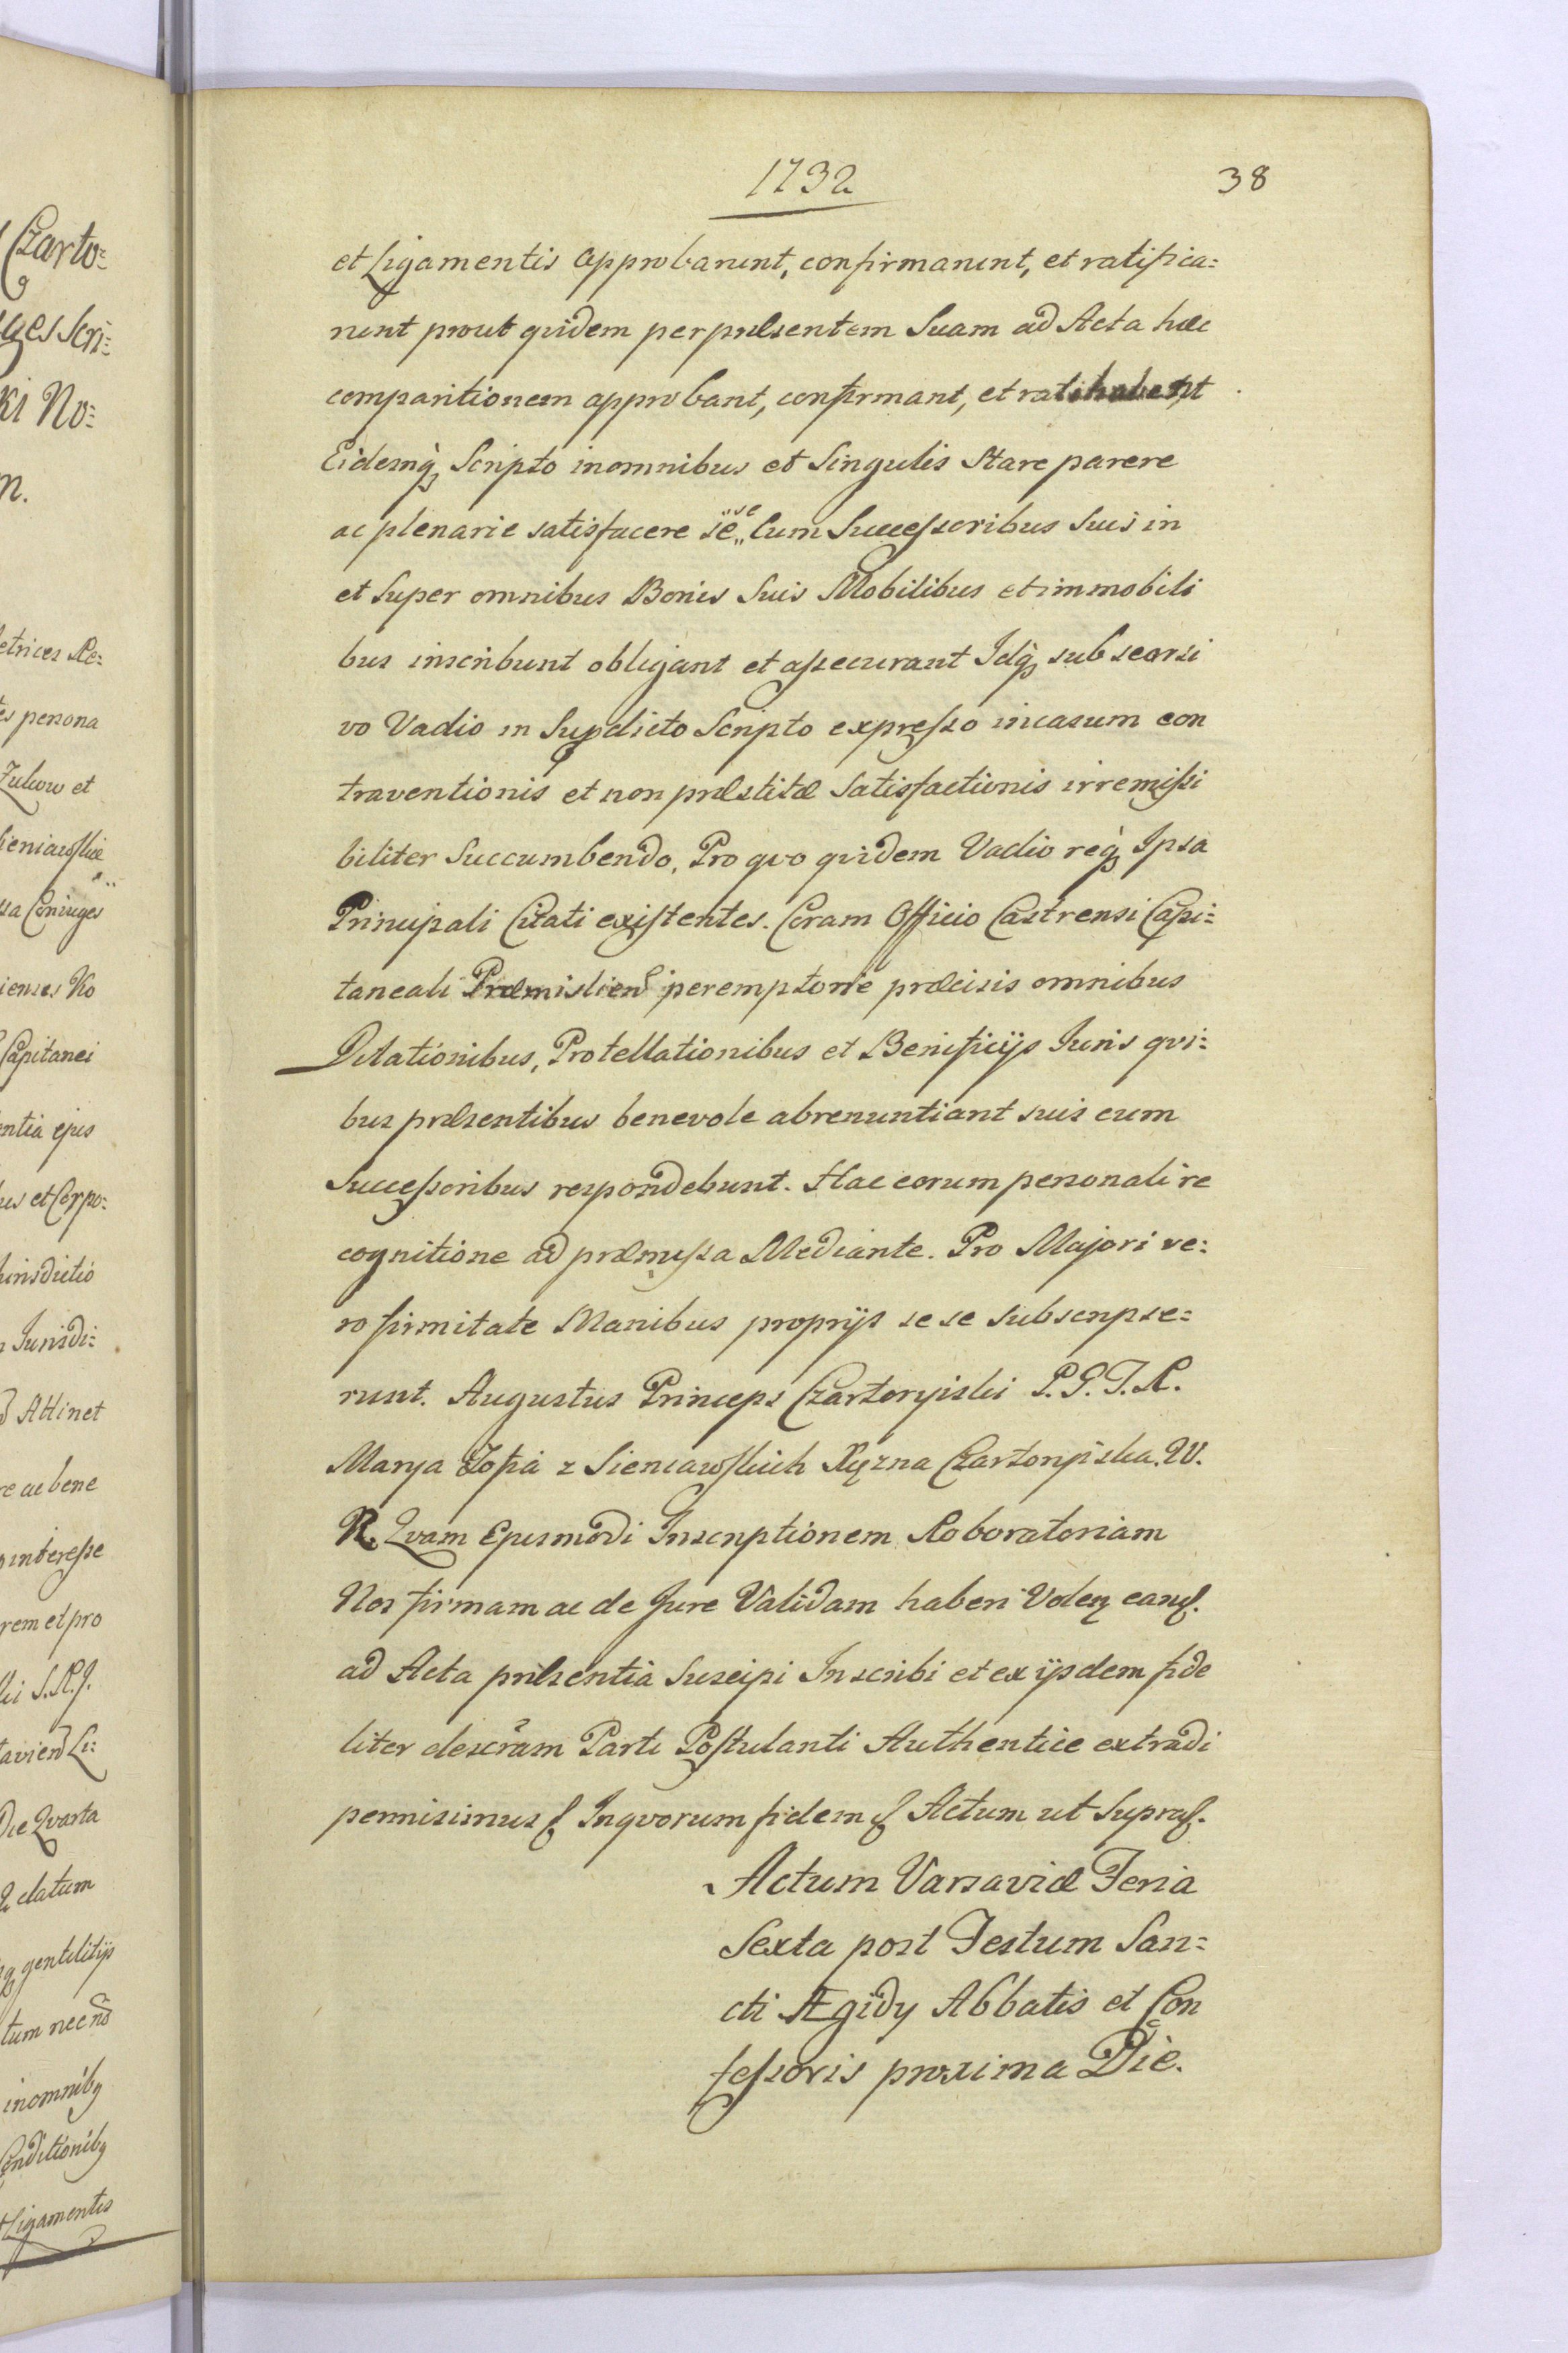 1732
38
et Ligamentis approbarunt, confirmarunt, et ratifica=
runt prout quidem per præsentem Suam ad Acta hæc
comparitionem approbant, confirmant, et ratihabent
Eidemq̀ Scripto in omnibus et Singulis Stare parere
ac plenarie satisfacere sese Cum Successoribus Suis in
et Super omnibus Bonis Suis Mobilibus et immobili
bus inscribunt obligant et assecurant Idq̀ sub searsi
vo Vadio in Supdicto Scripto expresso in casum con
traventionis et non præstitæ Satisfactionis irremissi
biliter Succumbendo, Pro quo quidem Vadio req̀ Ipsa
Principali Citati existentes. Coram Officio Castrensi Capi=
taneali Præmislien peremptorie præcisis omnibus
Dilationibus, Protellationibus et Benificijs Juris qvi=
bus præsentibus benevole abrenuntiant suis cum
Successoribus respondebunt. Hac eorum personali re
cognitione ad præmissa Mediante. Pro Majori ve=
ro firmitate Manibus proprijs se se subscripse=
runt. Augustus Princeps Czartoryiski P. G. T. R.
Marya Zofia z Sieniawskich Xięzna Czartoryiska. W.
R. Qvam Ejusmodi Inscriptionem Roboratoriam
Nos firmam ac de Jure Validam haberi Volen eand.
ad Acta præsentia Suscipi Inscribi et ex ijsdem fide
liter descram Parti Postulanti Authentice extradi
permisimus Inqvorum fidem Actum ut Supra.
Actum Varsaviæ Feria
Sexta post Festum San=
cti Ægidy Abbatis et Con
fessoris proxima Die.
Czarto=
ges Scri=
ki No=
m.
etrices Re=
es persona
Zukow et
Sieniawskæ
sa Coniuges
ienses Ko
Capitanei
entia ejus
us et Corpo=
Jurisdictio
Jurisdi=
Attinet
re ac bene
interesse
rem et pro
ki S. R. J.
Die Qvarta
datum
gentilitijs
tum nec no
in omniby
Conditioniby
Ligamentis